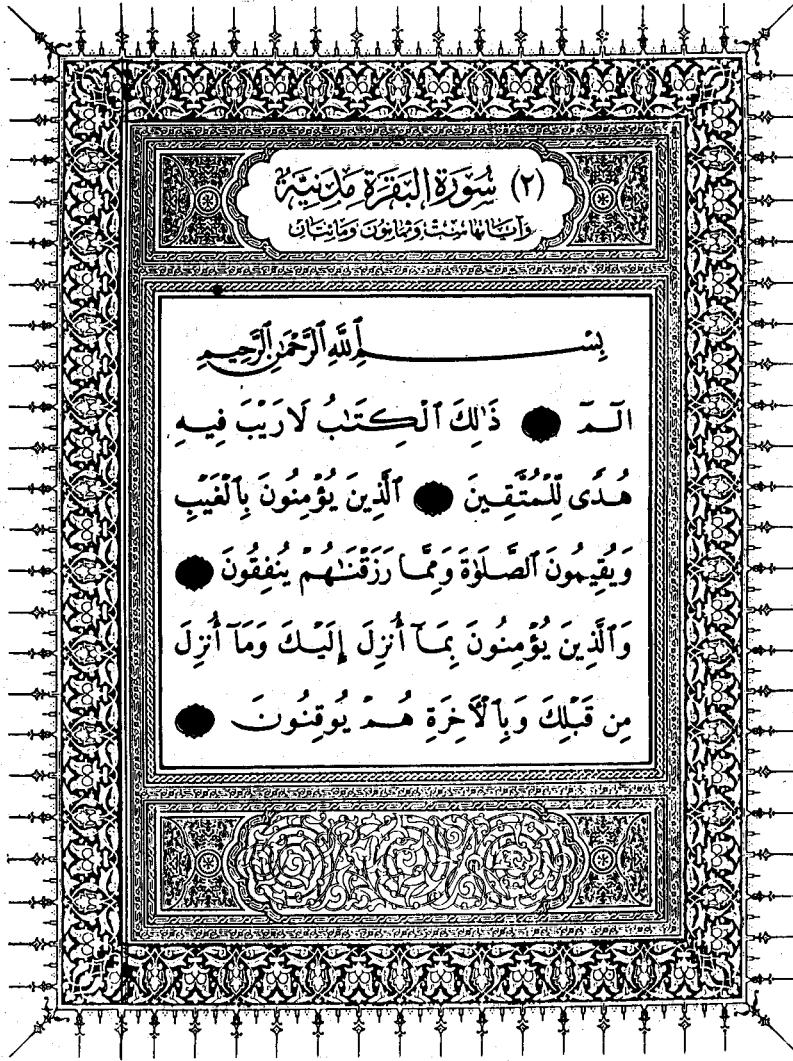 (٢) سُورَةُ البَقَرَةِ مَدَنِيَّةٌ
وَآيَاتُهَا سِتٌّ وَثَمَانُونَ وَمَائتَانِ
بِسْمِ ٱللَّهِ ٱلرَّحْمَٰنِ ٱلرَّحِيمِ
الٓمٓ ذَٰلِكَ ٱلْكِتَٰبُ لَا رَيْبَ فِيهِ
هُدًى لِّلْمُتَّقِينَ ٱلَّذِينَ يُؤْمِنُونَ بِٱلْغَيْبِ
وَيُقِيمُونَ ٱلصَّلَوٰةَ وَمِمَّا رَزَقْنَٰهُمْ يُنفِقُونَ
وَٱلَّذِينَ يُؤْمِنُونَ بِمَآ أُنزِلَ إِلَيْكَ وَمَآ أُنزِلَ
مِن قَبْلِكَ وَبِٱلْأَخِرَةِ هُمْ يُوقِنُونَ